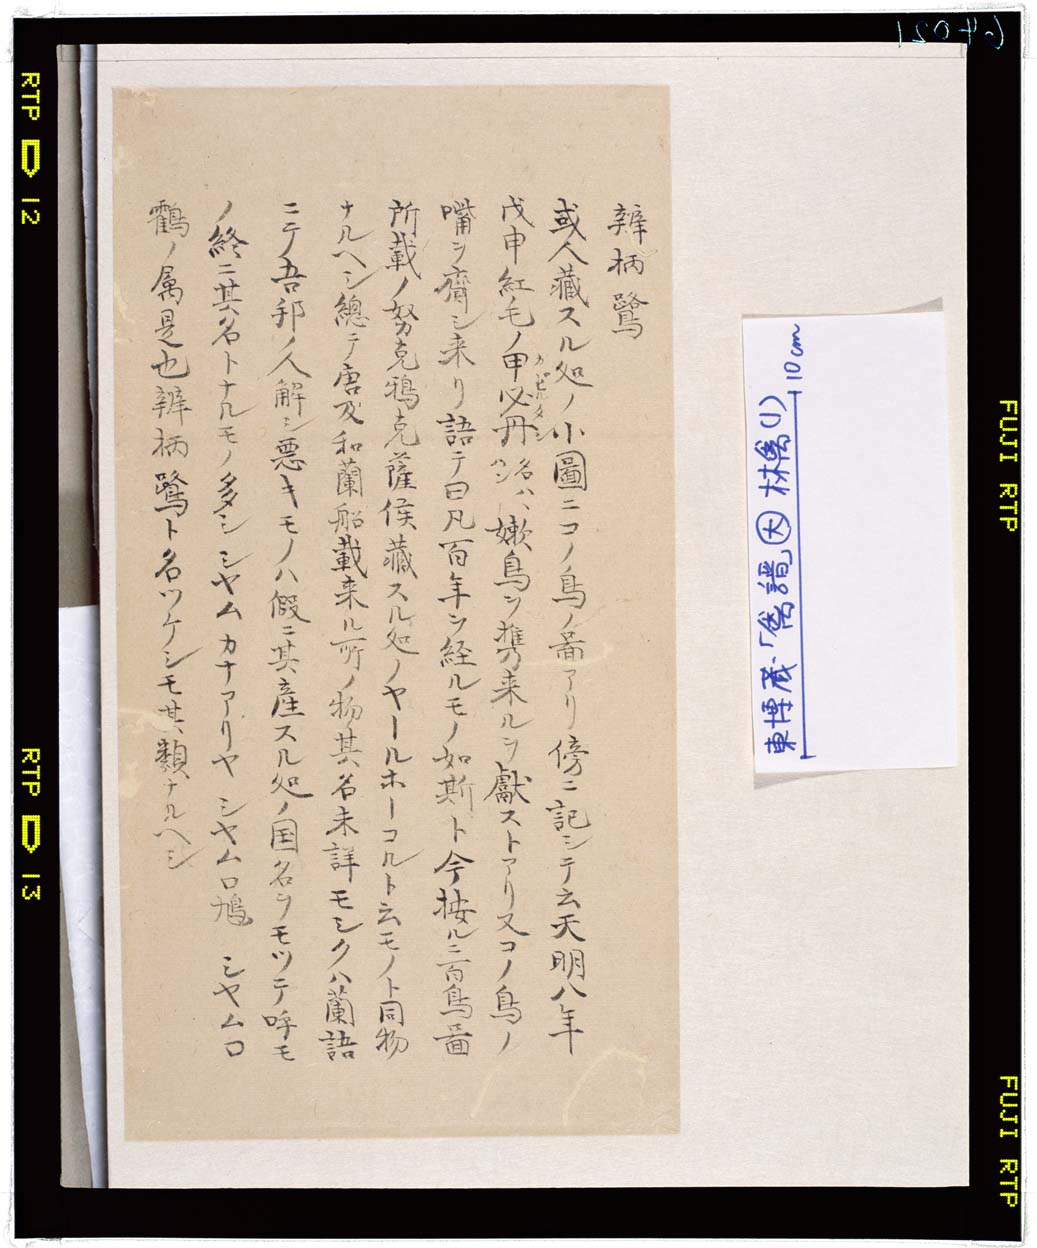 辨柄鷺
或人藏スル処ノ小圖ニコノ鳥ノ啚アリ傍ニ記シテ云天明八年
戊申紅毛ノ甲必丹名ハ嫩鳥ヲ携来ルヲ獻ストアリ又コノ鳥ノ
カピタン
ハン
嘴ヲ齎シ来リ語テ曰凡百年ヲ経ルモノ如斯ト今按ルニ百鳥啚
所載ノ努克鴉克薩侯藏スル処ノヤールホーコルト云モノト同物
ナルヘシ總テ唐及和蘭船載来ル所ノ物其名未詳モシクハ蘭語
ニテ吾邦ノ人解シ悪キモノハ假ニ其産スル処ノ国名ヲモツテ呼モ
ノ終ニ其名トナルモノ多シシヤムカナアリヤ シヤムロ鳩 シヤムロ
鸛ノ属是也辨柄鷺ト名ツケシモ其類ナルヘシ
東博蔵、「禽譜 大 林禽(1)
10cm
64021
RTP D 12
RTP D 13
FUJI RTP
FUJI RTP